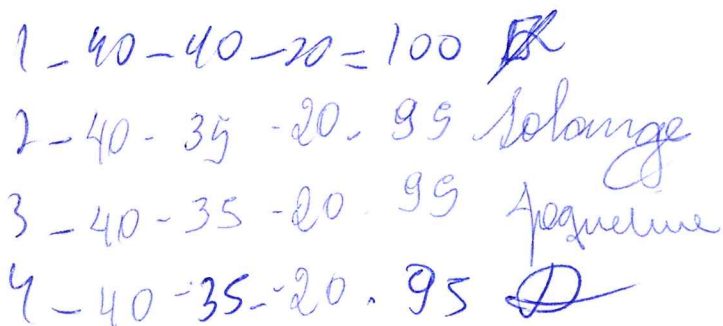 1-40-40-20=100
2-40-39-20-99 Solange
3-40-35-20.99 Jaqueline
4-40-35-20.95